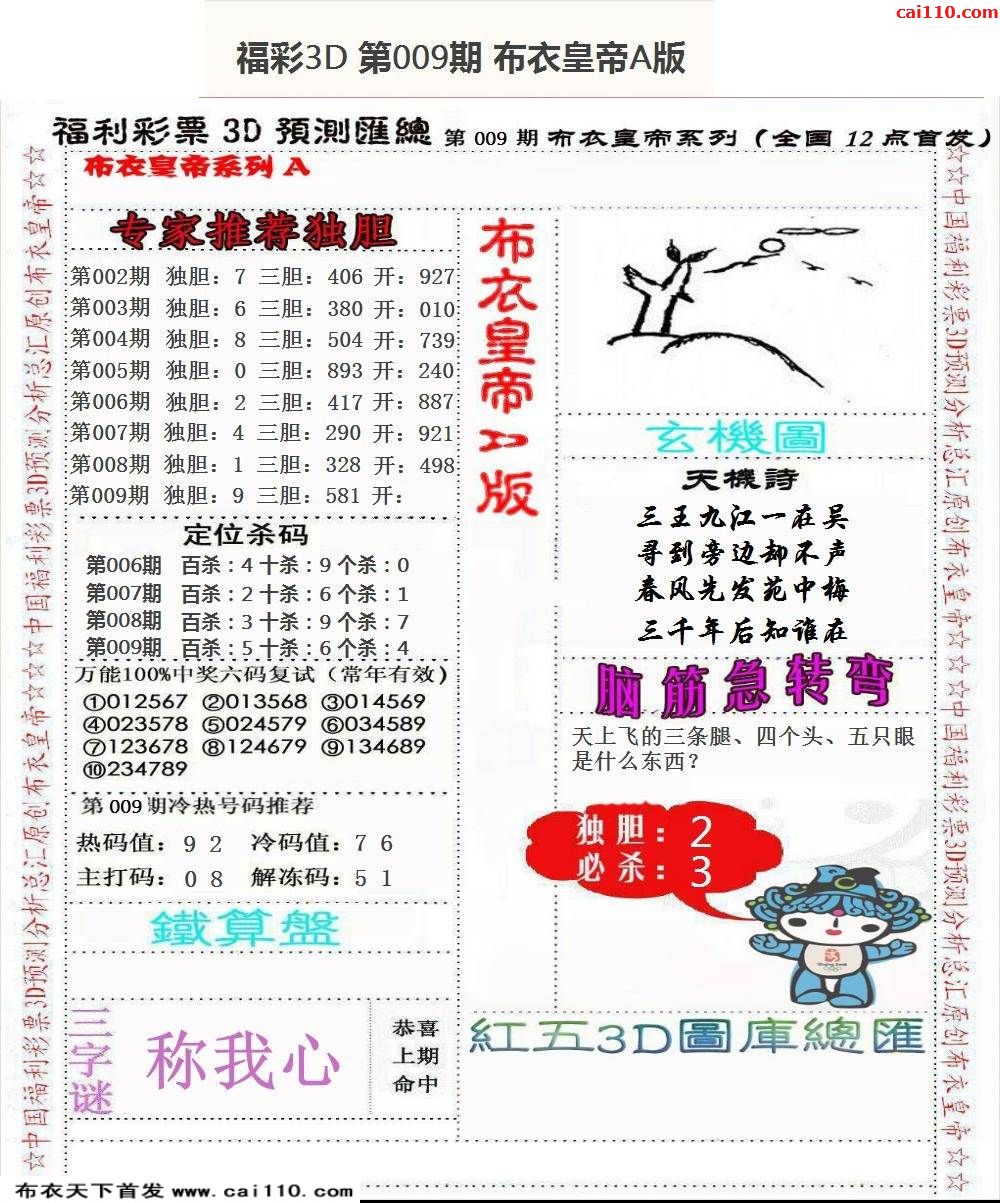 cai110.com
福彩3D 第009期 布衣皇帝A版
福利彩票 3D 預測匯總 第 009 期 布衣皇帝系列 ( 全国 12 点首发 )
布衣皇帝系列 A
专家推荐独胆
第002期 独胆：7 三胆：406 开：927
第003期 独胆：6 三胆：380 开：010
第004期 独胆：8 三胆：504 开：739
第005期 独胆：0 三胆：893 开：240
第006期 独胆：2 三胆：417 开：887
第007期 独胆：4 三胆：290 开：921
第008期 独胆：1 三胆：328 开：498
第009期 独胆：9 三胆：581 开：
定位杀码
第006期 百杀：4 十杀：9 个杀：0
第007期 百杀：2 十杀：6 个杀：1
第008期 百杀：3 十杀：9 个杀：7
第009期 百杀：5 十杀：6 个杀：4
万能100%中奖六码复试（常年有效）
①012567 ②013568 ③014569
④023578 ⑤024579 ⑥034589
⑦123678 ⑧124679 ⑨134689
⑩234789
第 009 期冷热号码推荐
热码值：9 2 冷码值：7 6
主打码：0 8 解冻码：5 1
鐵算盤
三字谜
称我心
恭喜
上期
命中
布衣皇帝A版
玄機圖
天機詩
三王九江一在吴
寻到旁边却不声
春风先发苑中梅
三千年后知谁在
脑筋急转弯
天上飞的三条腿、四个头、五只眼
是什么东西？
独胆：2
必杀：3
紅五3D圖庫總匯
☆中国福利彩票3D预测分析总汇原创布衣皇帝☆☆☆中国福利彩票3D预测分析总汇原创布衣皇帝☆☆
☆☆中国福利彩票3D预测分析总汇原创布衣皇帝☆☆☆中国福利彩票3D预测分析总汇原创布衣皇帝☆☆
布衣天下首发 www.cai110.com